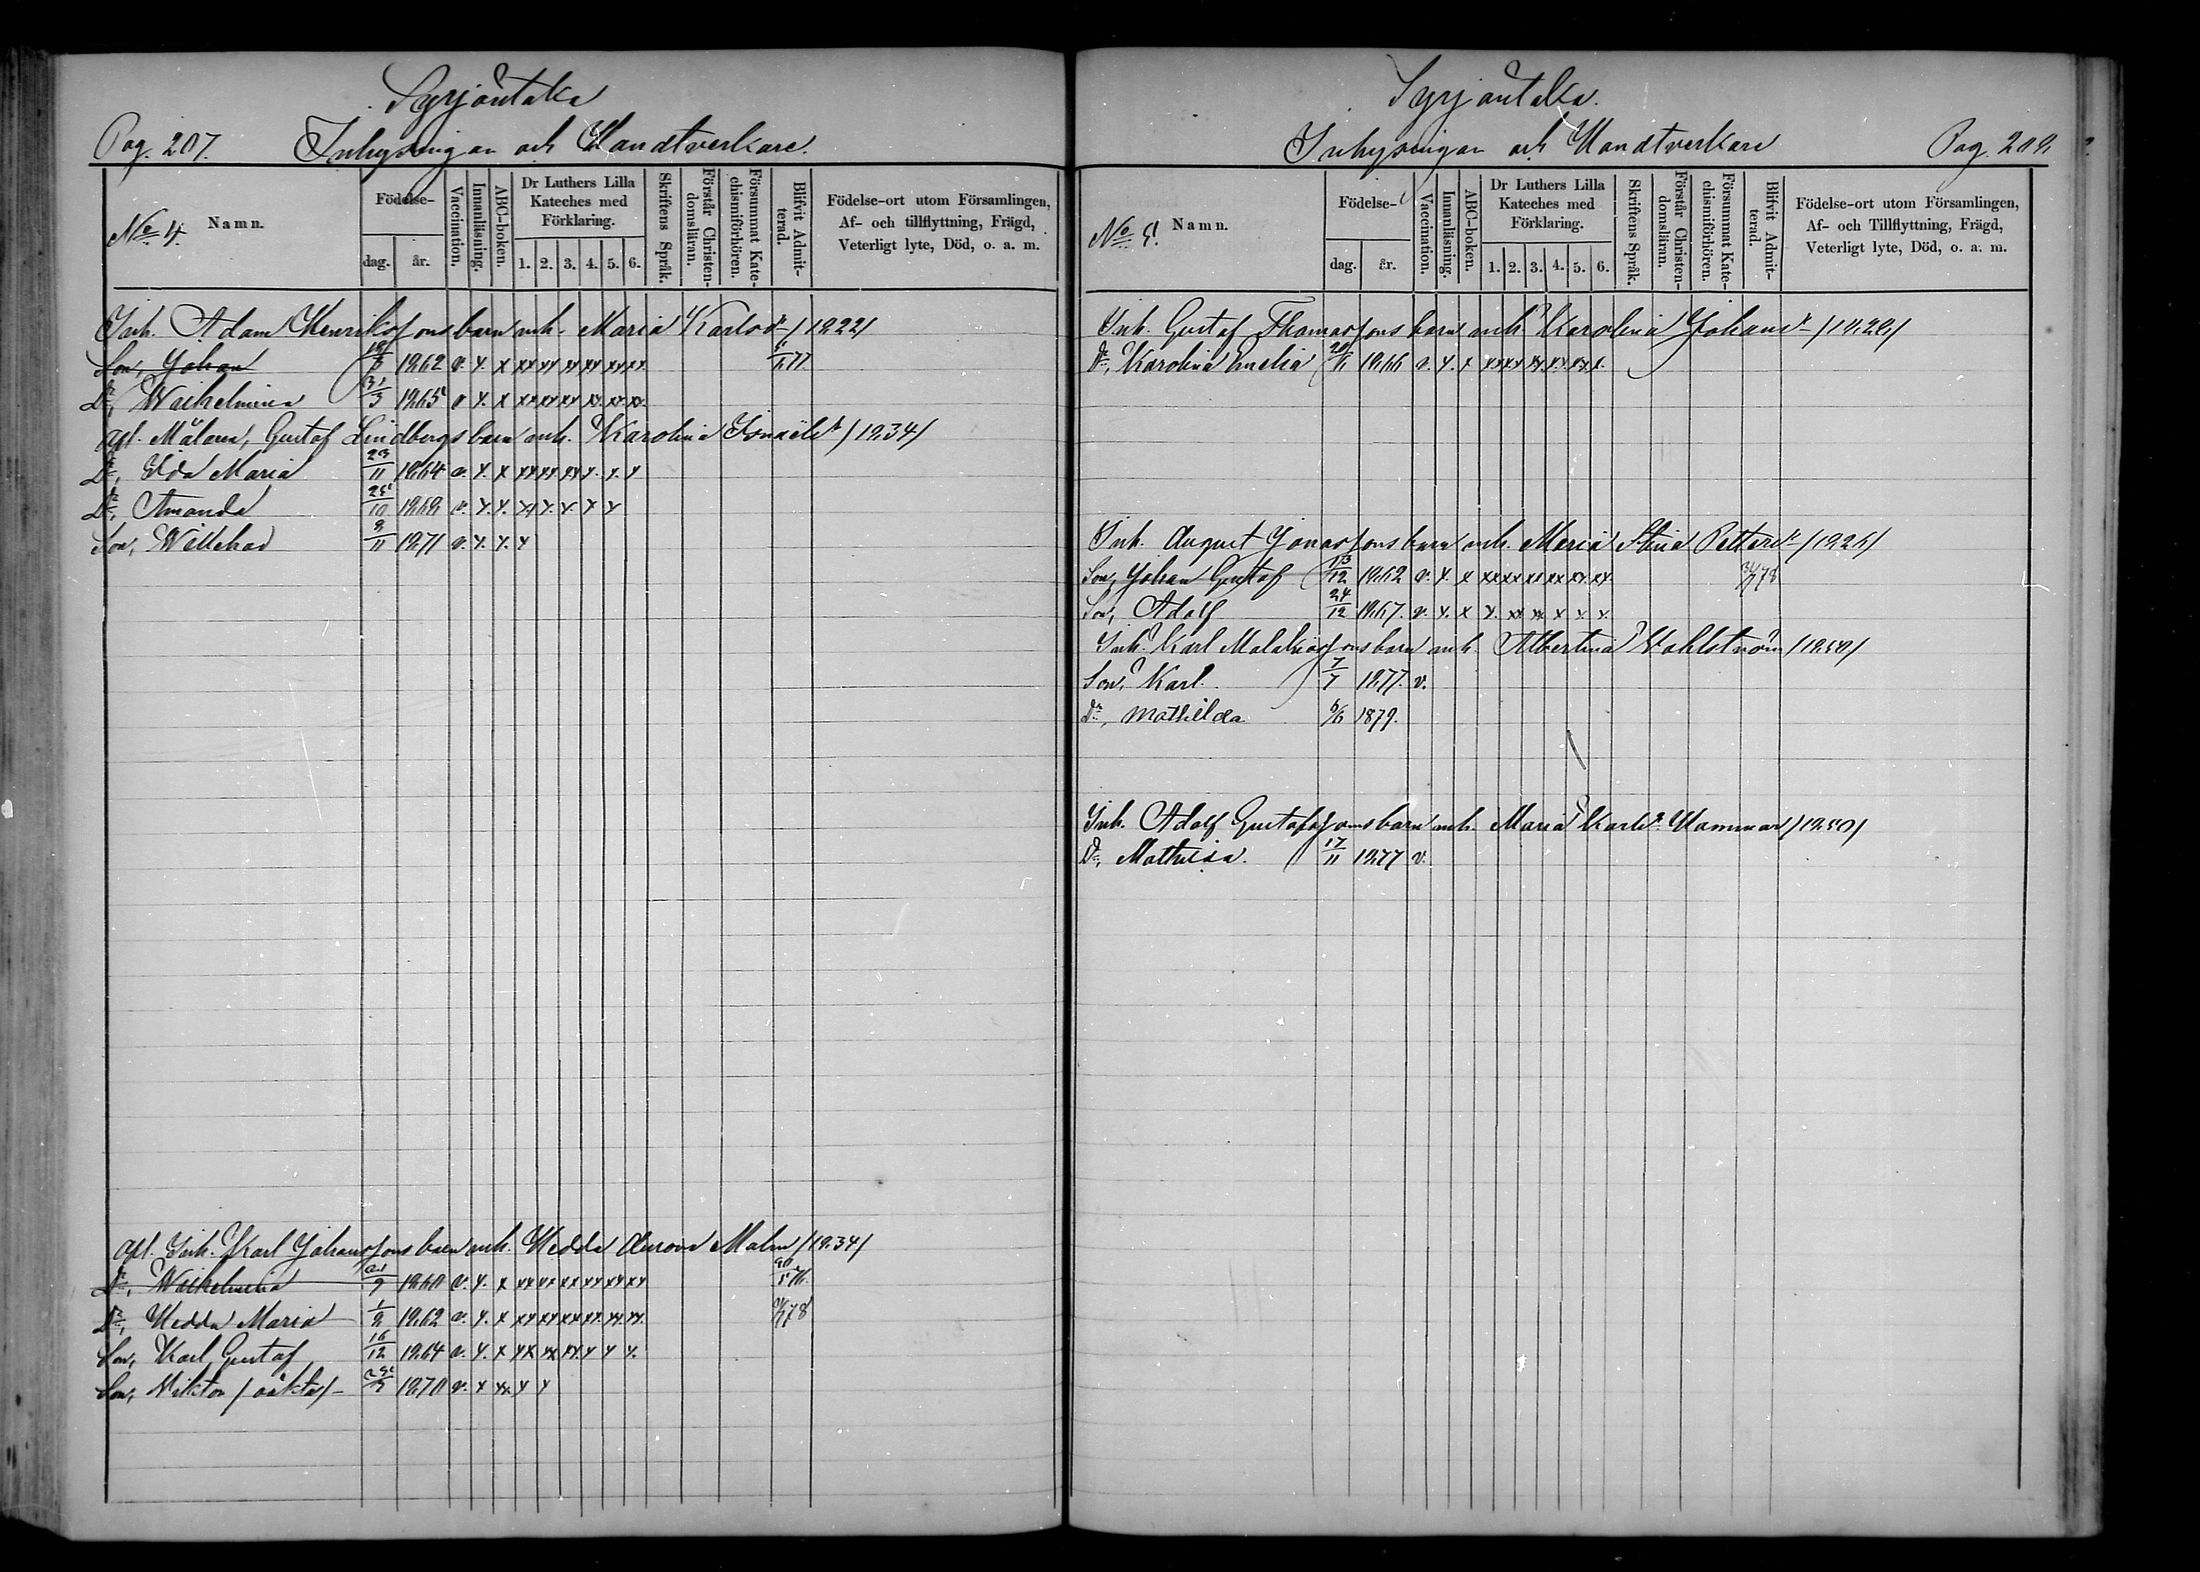 Syrjäntaka
Pag. 207. Inhysingar och Handtverkare.
No 4. Namn.
Födelse-
dag. år.
Vaccination.
Innanläsning.
ABC-boken.
Dr Luthers Lilla
Kateches med
Förklaring.
1. 2. 3. 4. 5. 6.
Skriftens Språk.
Förstår Christen-
domsläran.
Försummat Kate-
chismiförhören.
Blifvit Admit-
terad.
Födelse-ort utom Församlingen,
Af- och tillflyttning, Frägd,
Veterligt lyte, Död, o. a. m.
Inh. Adam Henrikssons barn m.h. Maria Karlsdr /1822/
Son, Johan 1862 v. x. x xx xx xx xx xx xx 77
Dr, Wilhelmina 31/3 1865 v x. x xx xx xx xx. xx. xx.
afl. Målaren, Gustaf Lindbergs barn m.h. Karolina Israelsdr /1834/
Dr, Ida Maria 23/11 1864 v. x. x xx xx xx x. x. x
Dr, Amanda 25/10 1868 v. x x. xx x. x. x x
Son, Willehad 8/11 1871 v. x. x. x
afl. Inh. Karl Johanssons barn m.h. Hedda Aurora Malm /1834/
Dr, Wilhelmina 1860 v. x. x xx xx xx xx xx xx
Dr, Hedda Maria 1862 v. x. x xx xx xx xx xx. xx. 78
Son, Karl Gustaf 16/12 1864 v. x. x xx xx xx. x x x.
Son, Viktor /oäkta/ 1870 v. x xx x x
Syrjäntaka.
Inhysingar och Handtverkare Pag. 208.
No 5. Namn.
Födelse-
dag. år.
Vaccination.
Innanläsning.
ABC-boken.
Dr Luthers Lilla
Kateches med
Förklaring.
1. 2. 3. 4. 5. 6.
Skriftens Språk.
Förstår Christen-
domsläran.
Försummat Kate-
chismiförhören.
Blifvit Admit-
terad.
Födelse-ort utom Församlingen,
Af- och Tillflyttning, Frägd,
Veterligt lyte, Död, o. a. m.
Inh. Gustaf Thomassons barn m.h. Karolina Johansdr /1828/
Dr, Karolina Amelia 1866 v. x. x xx xx xx. xx. xx x.
Inh. August Jonassons barn m.h. Maria Stina Pettersdr /1826/
Son, Johan Gustaf 13/12 1862 v. x. x xx xx xx xx xx. xx. 78
Son, Adolf 24/12 1867. v. x. x x. xx xx x x. x.
Inh. Karl Malakiassons barn m.h. Albertina Wahlström /1850/
Son, Karl 7/7 1877. v.
Dr, Mathilda 6/6 1879.
Inh. Adolf Gustafssons barn m.h. Maria Karlsdr Hammar /1850/
Dr, Mathilda. 17/11 1877 v.